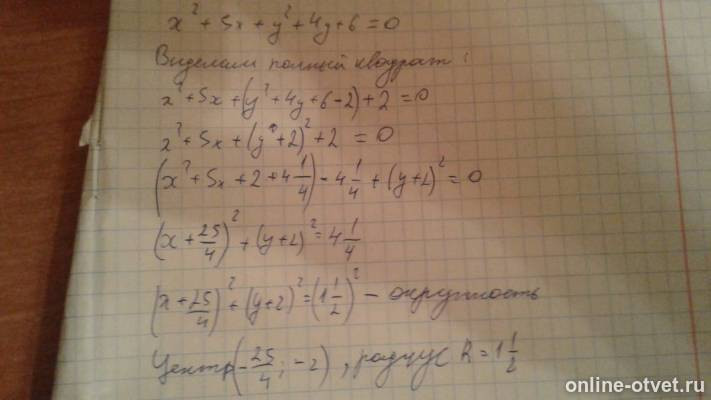 x² + 5x + y² + 4y + 6 = 0
Выделим полный квадрат:
x² + 5x + (y² + 4y + 6 - 2) + 2 = 0
x² + 5x + (y + 2)² + 2 = 0
(x² + 5x + 2 + 4 1/4) - 4 1/4 + (y + 2)² = 0
(x + 25/4)² + (y + 2)² = 4 1/4
(x + 25/4)² + (y + 2)² = (1 1/2)² - окружность
Центр (-25/4; -2), радиус R = 1 1/2
online-otvet.ru